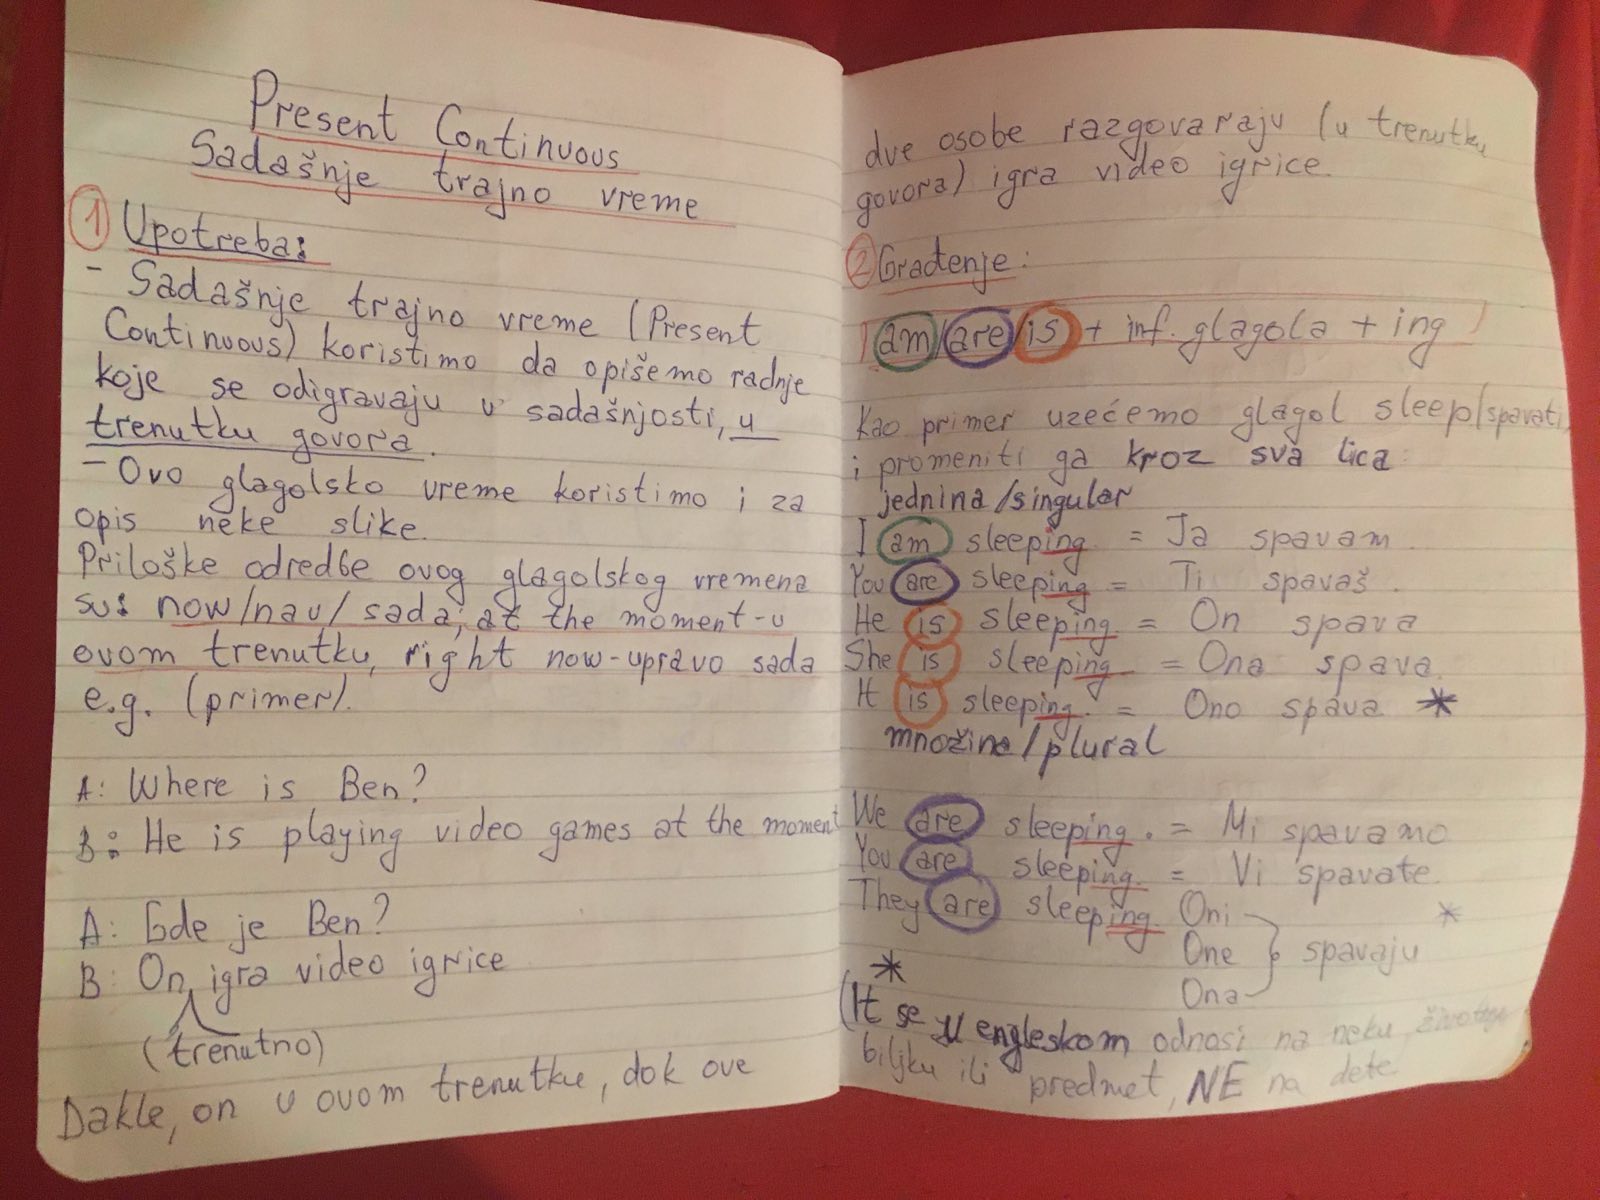 Present Continuous
Sadašnje trajno vreme
1 Upotreba:
- Sadašnje trajno vreme (Present
Continuous) koristimo da opišemo radnje
koje se odigravaju u sadašnjosti, u
trenutku govora.
- Ovo glagolsko vreme koristimo i za
opis neke slike.
Priloške odredbe ovog glagolskog vremena
su: now/nau/sada, at the moment-u
ovom trenutku, right now-upravo sada
e.g. (primer).
A: Where is Ben?
B: He is playing video games at the moment
A: Gde je Ben?
B: On igra video igrice
(trenutno)
Dakle, on u ovom trenutku, dok ove
dve osobe razgovaraju (u trenutku
govora) igra video igrice.
2 Građenje:
am/are/is + inf. glagola + ing
Kao primer uzećemo glagol sleep/spavati,
i promeniti ga kroz sva lica:
jednina/singular
I am sleeping = Ja spavam.
You are sleeping = Ti spavaš.
He is sleeping = On spava
She is sleeping = Ona spava.
It is sleeping. = Ono spava *
množina/plural
We are sleeping. = Mi spavamo
You are sleeping. = Vi spavate.
They are sleeping. Oni *
One spavaju
Ona
*
(It se u engleskom odnosi na neku
biljku ili predmet, NE na dete